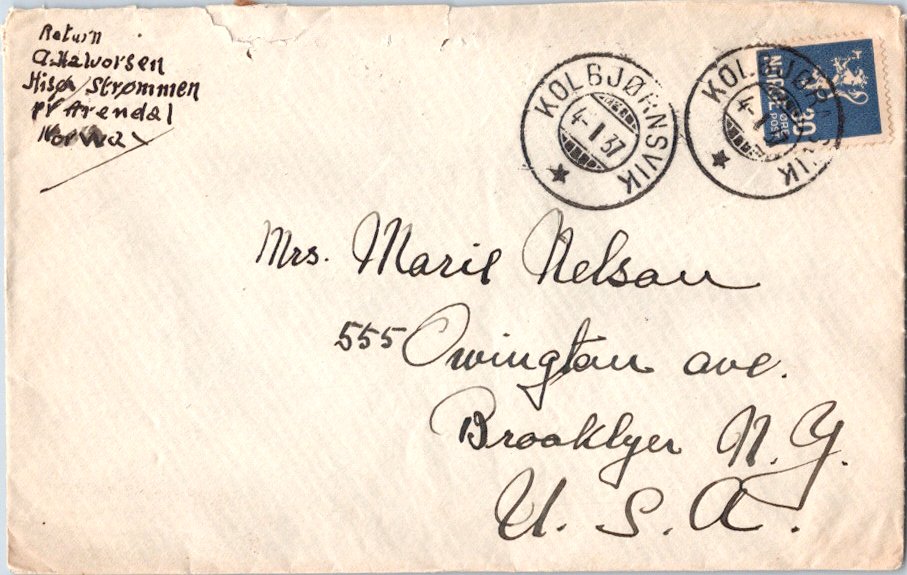 Return
A. Halvorsen
Hisø/Strømmen
pr Arendal
Norway
KOLBJØRNSVIK
4-1 37
KOLBJØRNSVIK
4-1
NORGE
30
ØRE
POST
Mrs. Marie Nelson
555 Ovington ave.
Brooklyn N.Y.
U.S.A.